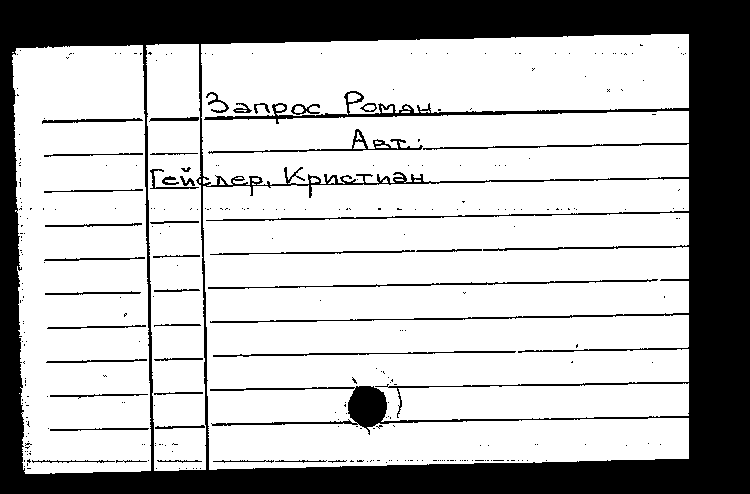 Запрос. Роман.
Авт.:
Гейслер, Кристиан